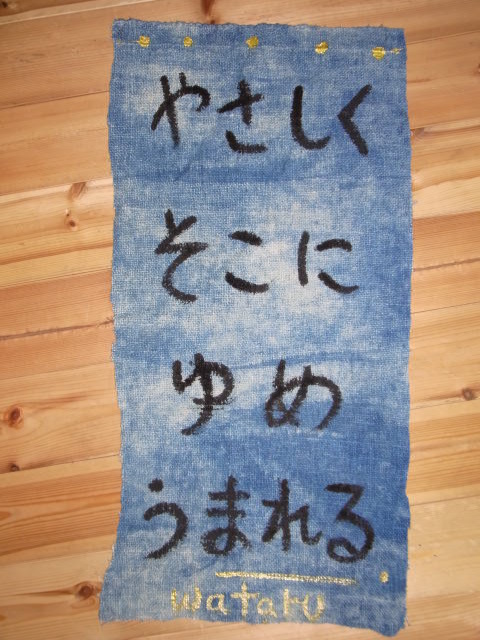 やさしく
そこに
ゆめ
うまれる
wataru